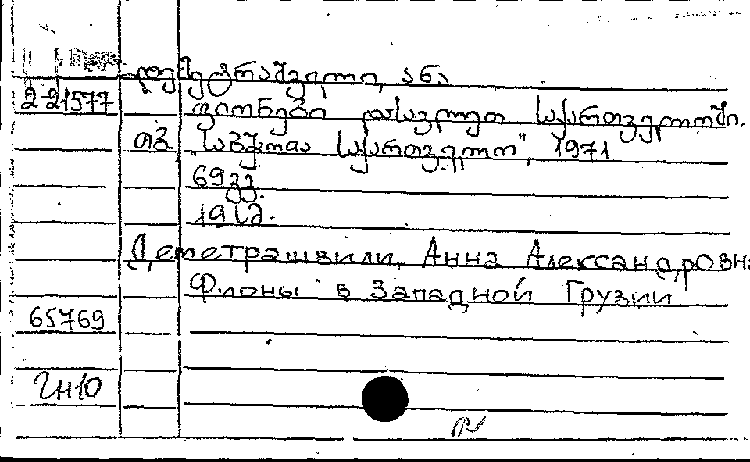 დემეტრაშვილი, ანა
2-21577 ფიონები დასავლეთ საქართველოში.
თბ "საბჭოთა საქართველო", 1971
69 გვ.
19 სმ.
Деметрашвили, Анна Александровна
Фионы в Западной Грузии
65769